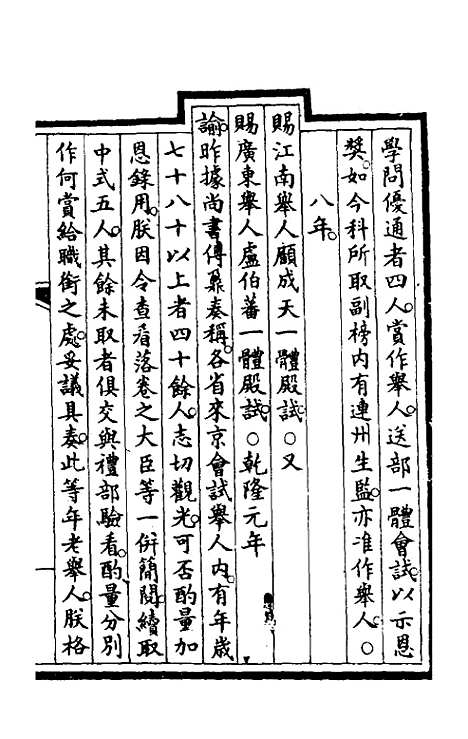 學問優通者四人。賞作舉人。送部一體會試。以示恩
獎。如今科所取副榜內有連州生監。亦准作舉人。○
八年。
賜江南舉人顧成天一體殿試。○又
賜廣東舉人盧伯蕃一體殿試。○乾隆元年
諭。昨據尚書傅鼐奏稱。各省來京會試舉人內。有年歲
七十八十以上者四十餘人。志切觀光。可否酌量加
恩錄用。朕因令查看落卷之大臣等一併簡閱。續取
中式五人。其餘未取者俱交與禮部驗看。酌量分別
作何賞給職銜之處。妥議具奏。此等年老舉人。朕格